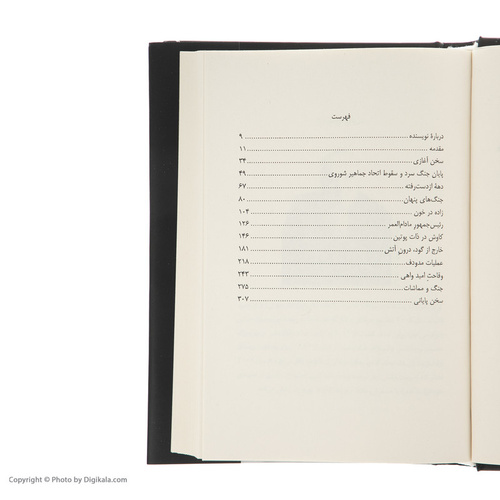 فهرست
دربارهٔ نویسنده ........ ۹
مقدمه ........ ۱۱
سخن آغازی ........ ۳۴
پایان جنگ سرد و سقوط اتحاد جماهیر شوروی ........ ۴۹
دههٔ ازدست‌رفته ........ ۶۷
جنگ‌های پنهان ........ ۸۰
زاده در خون ........ ۱۰۴
رئیس‌جمهور مادام‌العمر ........ ۱۲۶
کاوش در ذات پوتین ........ ۱۴۶
خارج از گود، درون آتش ........ ۱۸۱
عملیات مدودف ........ ۲۱۸
وقاحتِ امید واهی ........ ۲۴۳
جنگ و مماشات ........ ۲۷۵
سخن پایانی ........ ۳۰۷
Copyright © Photo by Digikala.com